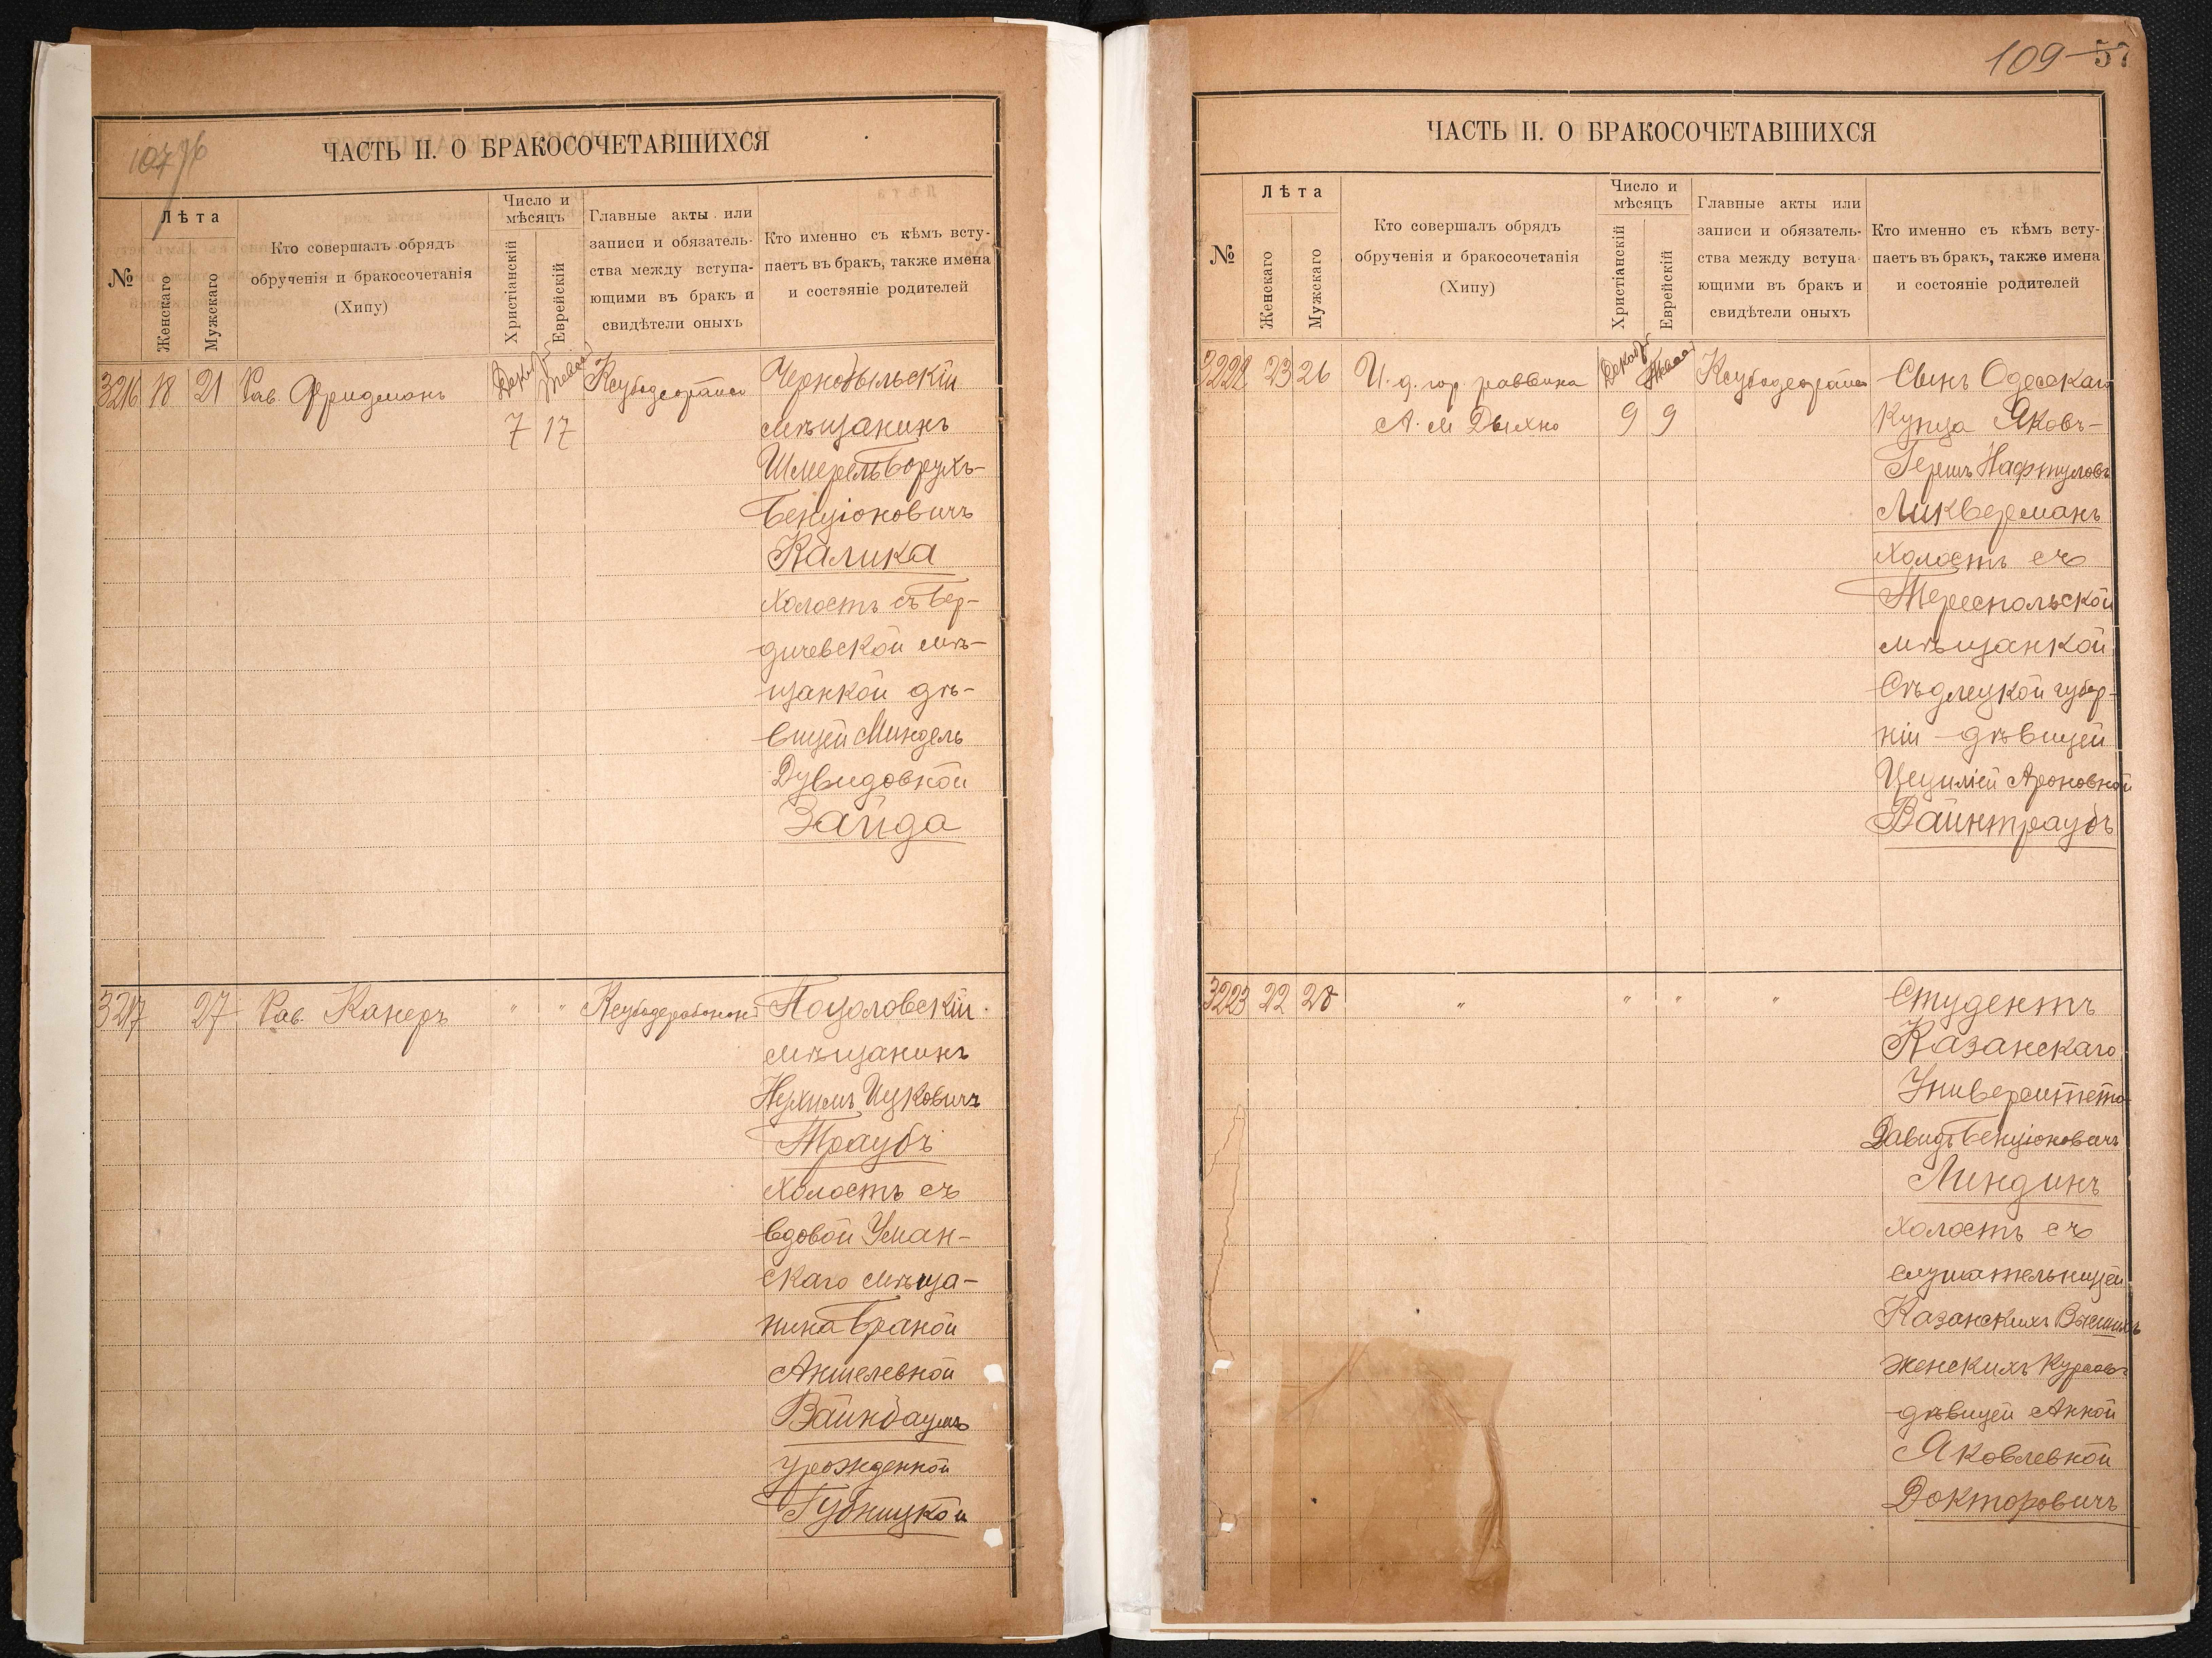 107 76
ЧАСТЬ II. О БРАКОСОЧЕТАВШИХСЯ
№
Лѣта
Женскаго
Мужскаго
Кто совершалъ обрядъ
обрученія и бракосочетанія
(Хипу)
Число и
мѣсяцъ
Христіанскій
Еврейскій
Главные акты или
записи и обязатель-
ства между вступа-
ющими въ бракъ и
свидѣтели оныхъ
Кто именно съ кѣмъ всту-
паетъ въ бракъ, также имена
и состояніе родителей
3216 18 21 Рав. Фридманъ
7 17
Чернобыльскій
мѣщанинъ
Шмерель Борухъ-
Бенціоновичъ
Калика
холостъ съ Бер-
дичевской мѣ-
щанкой дѣ-
вицей Миндель
Дувидовной
Зайда
3217 27 Рав. Канеръ " "
мѣщанинъ
Нухимъ Ицковичъ
Траубъ
холостъ съ
вдовой Уман-
скаго мѣща-
нина Браной
Аншелевной
Вайнбаумъ
урожденной
Губницкой
109 57
ЧАСТЬ II. О БРАКОСОЧЕТАВШИХСЯ
№
Лѣта
Женскаго
Мужскаго
Кто совершалъ обрядъ
обрученія и бракосочетанія
(Хипу)
Число и
мѣсяцъ
Христіанскій
Еврейскій
Главные акты или
записи и обязатель-
ства между вступа-
ющими въ бракъ и
свидѣтели оныхъ
Кто именно съ кѣмъ всту-
паетъ въ бракъ, также имена
и состояніе родителей
3222 23 26 И. д. гор раввина
А. М Дыхно
9 9
Сынъ Одесскаго
купца Яковъ-
Гершъ Нафтуловъ
Ликверманъ
холостъ съ
Тереспольской
мѣщанкой
Сѣдлецкой губер-
ніи - дѣвицей
Цециліей Ароновной
Вайнтраубъ
3223 22 28 " " " "
Студентъ
Казанскаго
Университета
Давидъ Бенціоновичъ
Линдинъ
холостъ съ
слушательницей
Казанскихъ Высшихъ
женскихъ курсовъ
дѣвицей Анной
Яковлевной
Докторовичъ